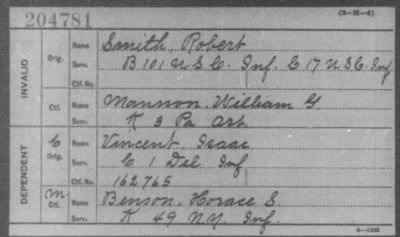 204781
(3-22-4)
INVALID
Orig. Name Smith, Robert
Serv. B 101 U.S.C. Inf. C 17 U.S.C. Inf
Ctf. No.
Ctf. Name Mannon, William G.
Serv. K 3 Pa Art
DEPENDENT
C Orig. Name Vincent, Isaac
Serv. C 1 Del Inf
Ctf. No. 162765
M. Ctf. Name Benson, Horace E.
Serv. K 49 N.Y. Inf.